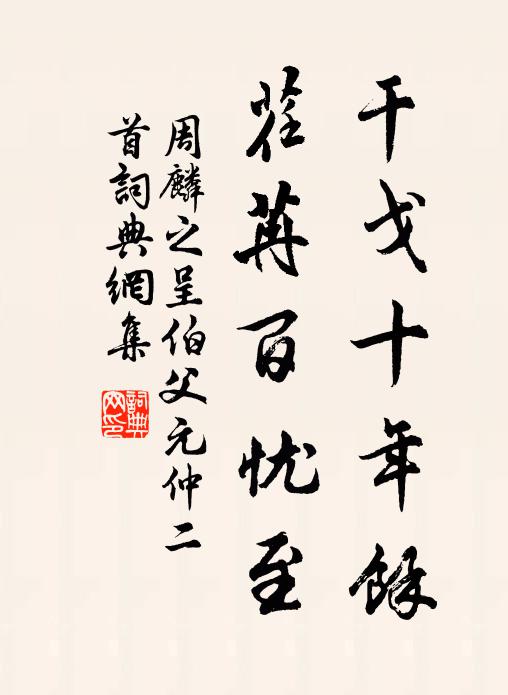 干戈十年餘
荏苒百忧至
周麟之呈伯父元仲二
首詞典網集
詞典
网印